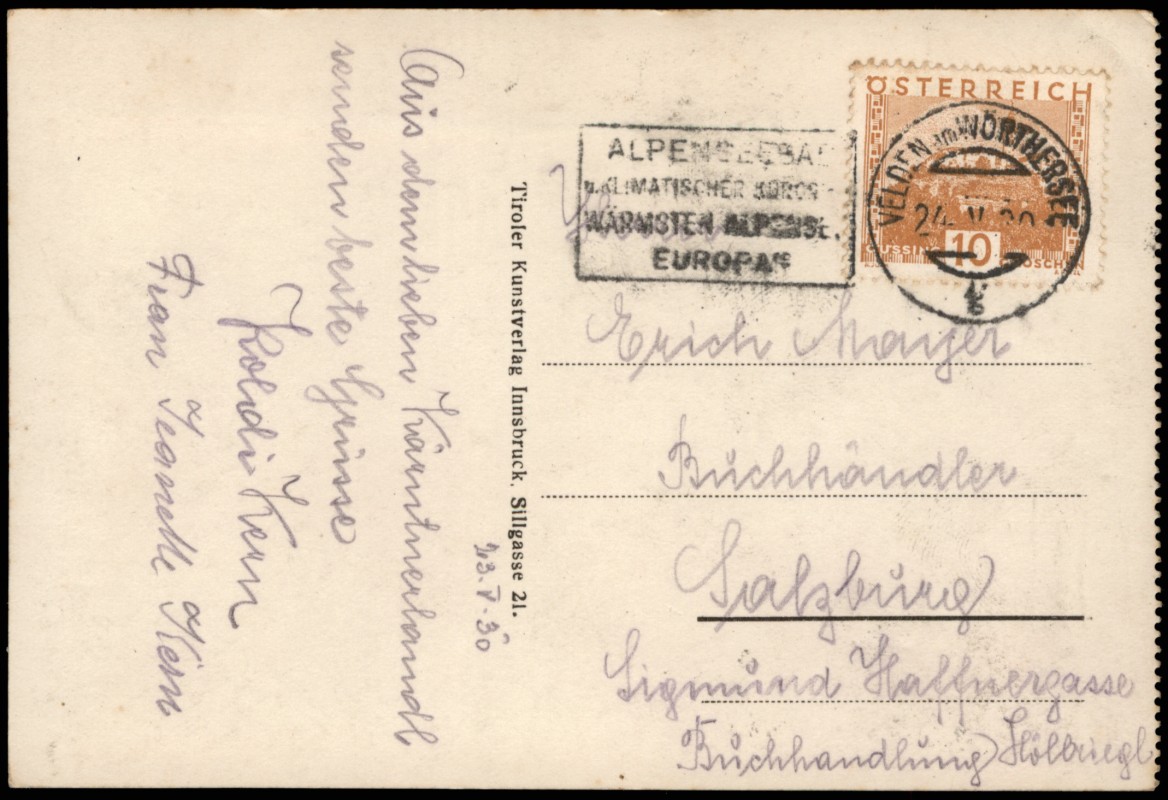 Aus dem lieben Kärntnerlandl
senden beste Grüsse
Koldi Kern
Frau Kern
23.V.30
Tiroler Kunstverlag Innsbruck. Sillgasse 21.
ALPENSEEBA
u. KLIMATISCHER KUROR
WÄRMSTEN ALPENSE
EUROPAS
ÖSTERREICH
GÜSSING 10 GROSCHEN
VELDEN am WÖRTHERSEE
24. V 30
Erich Mayer
Buchhändler
Salzburg
Sigmund Haffnergasse
Buchhandlung Höllriegl